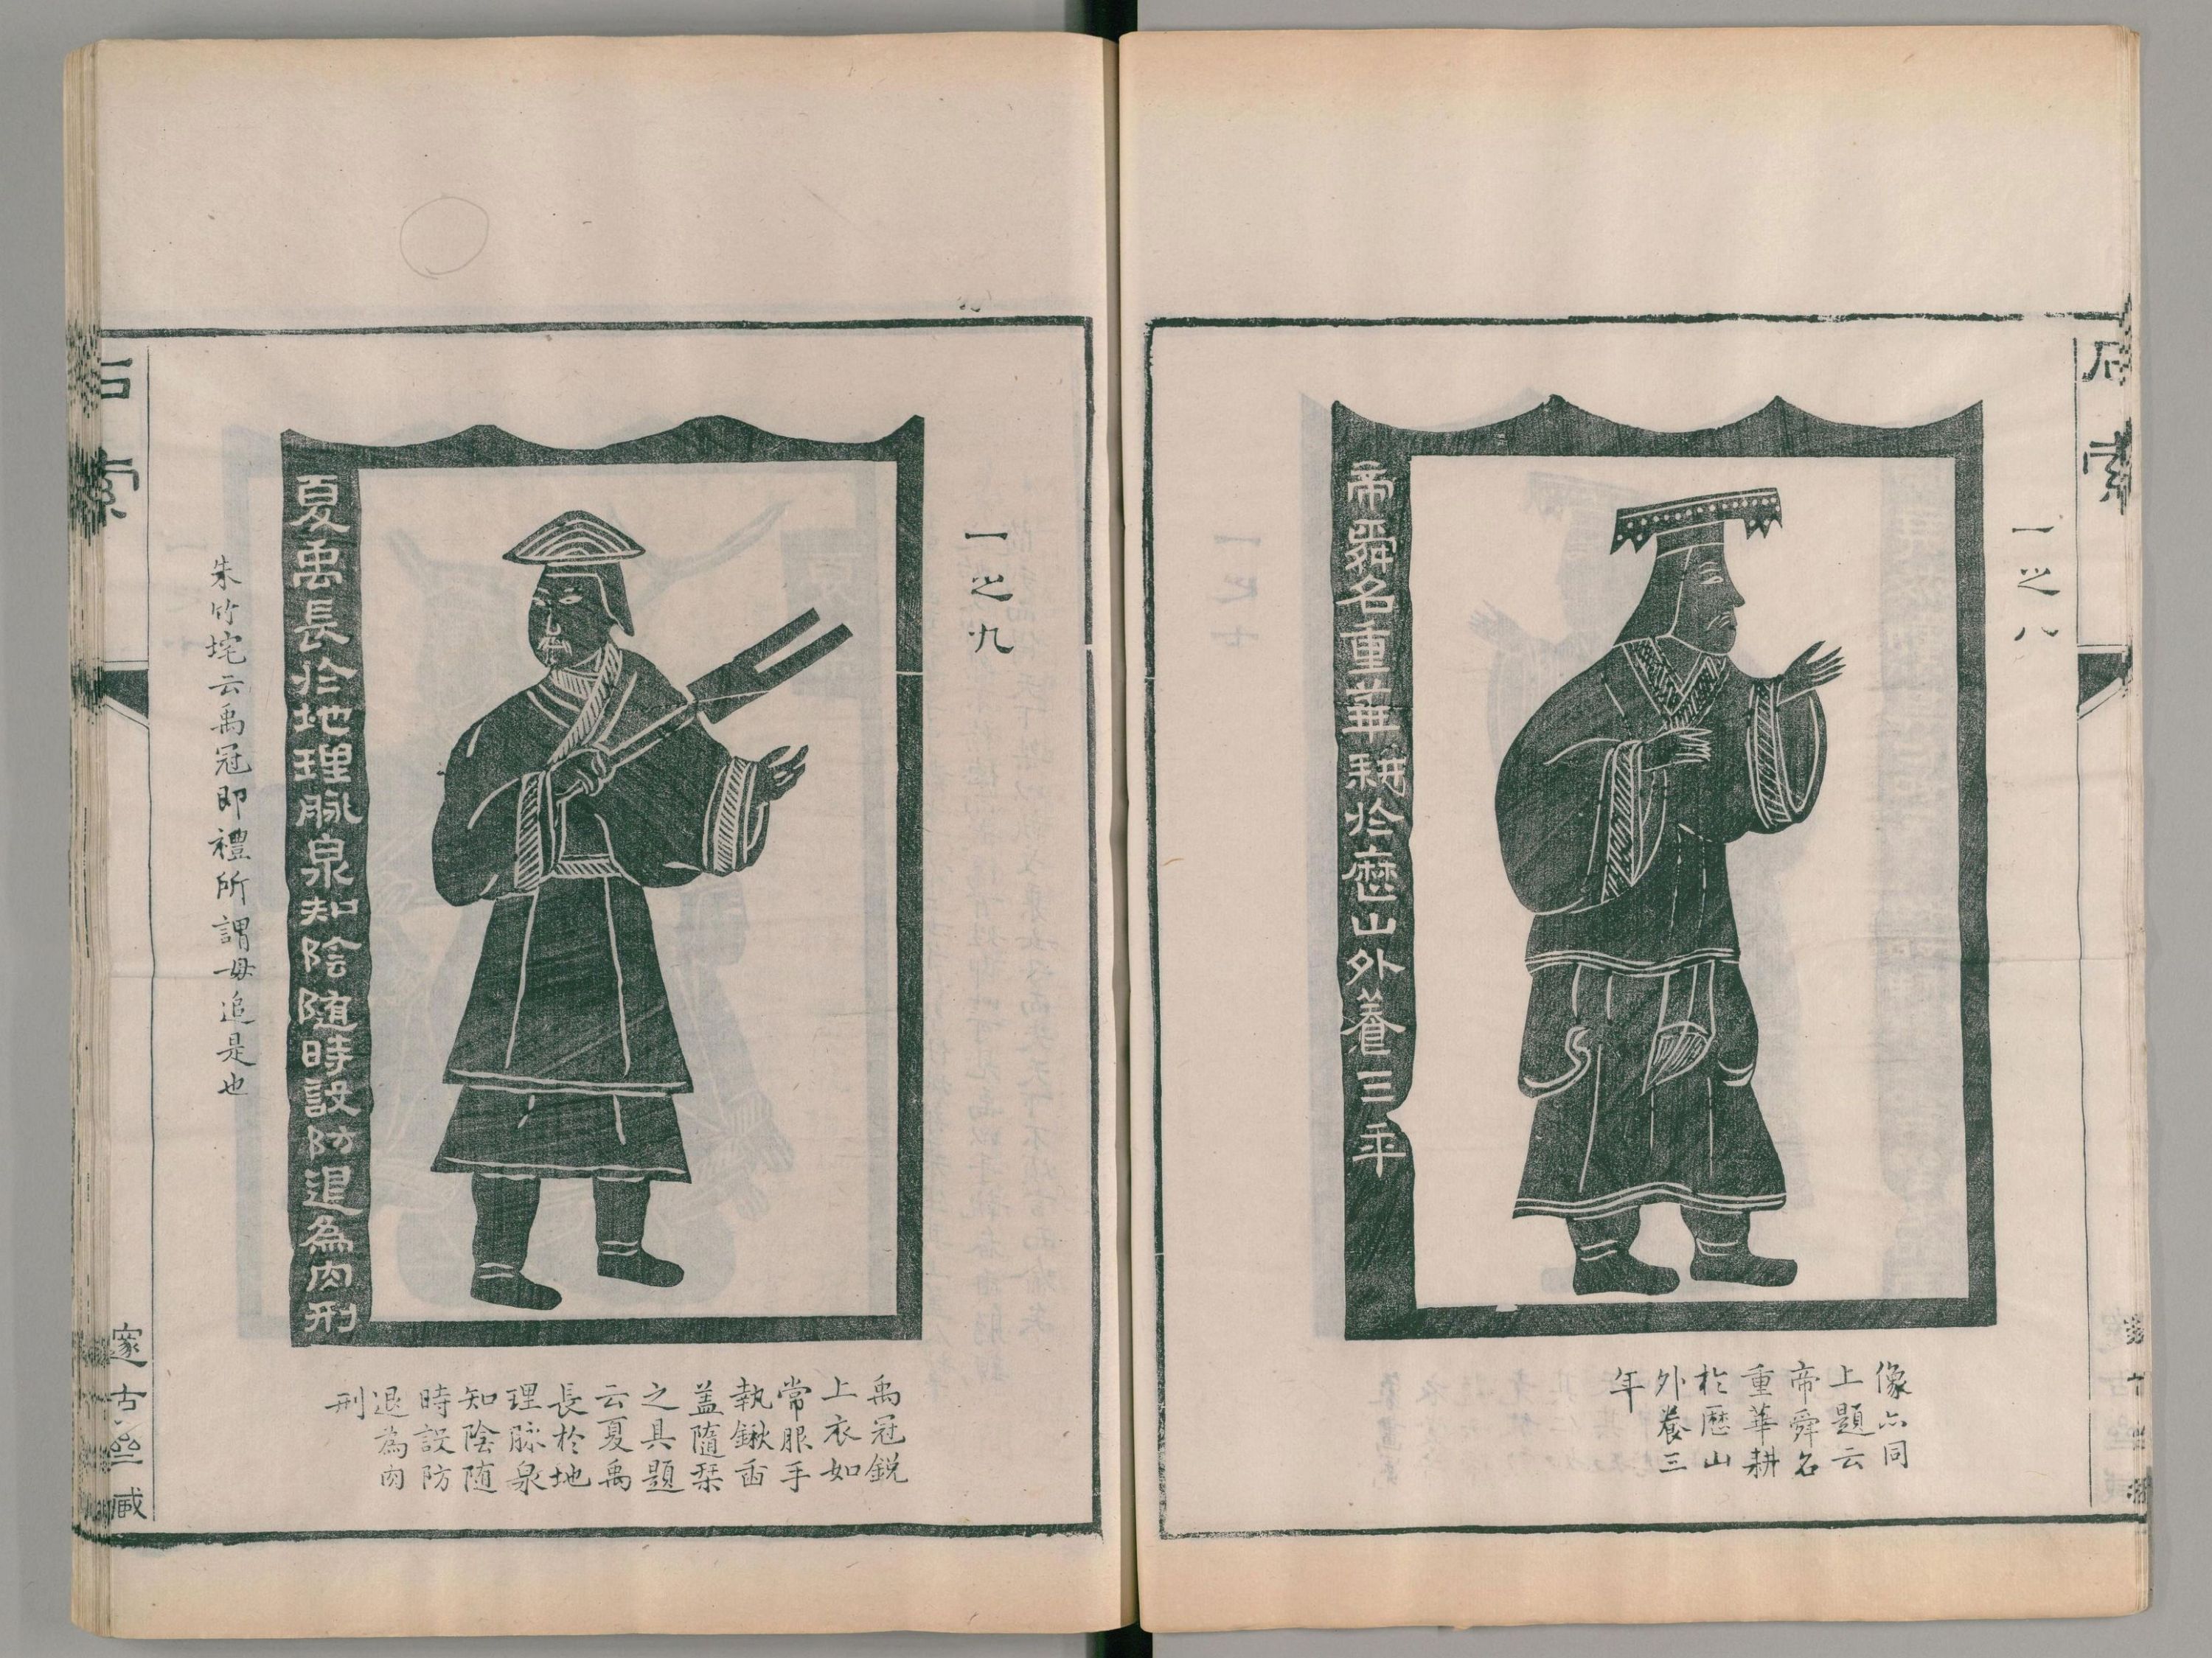 石索
一之八
帝舜名重華耕於歷山外養三年
像亦同
上題云
帝舜名
重華耕
於歷山
外養三
年
一之九
夏禹長於地理脉泉知陰随時設防退為肉刑
禹冠銳
上衣如
常服手
執鍬臿
蓋隨栞
之具題
云夏禹
長於地
理脉泉
知陰随
時設防
退為肉
刑
朱竹垞云禹冠即禮所謂毋追是也
石索
邃古齋藏